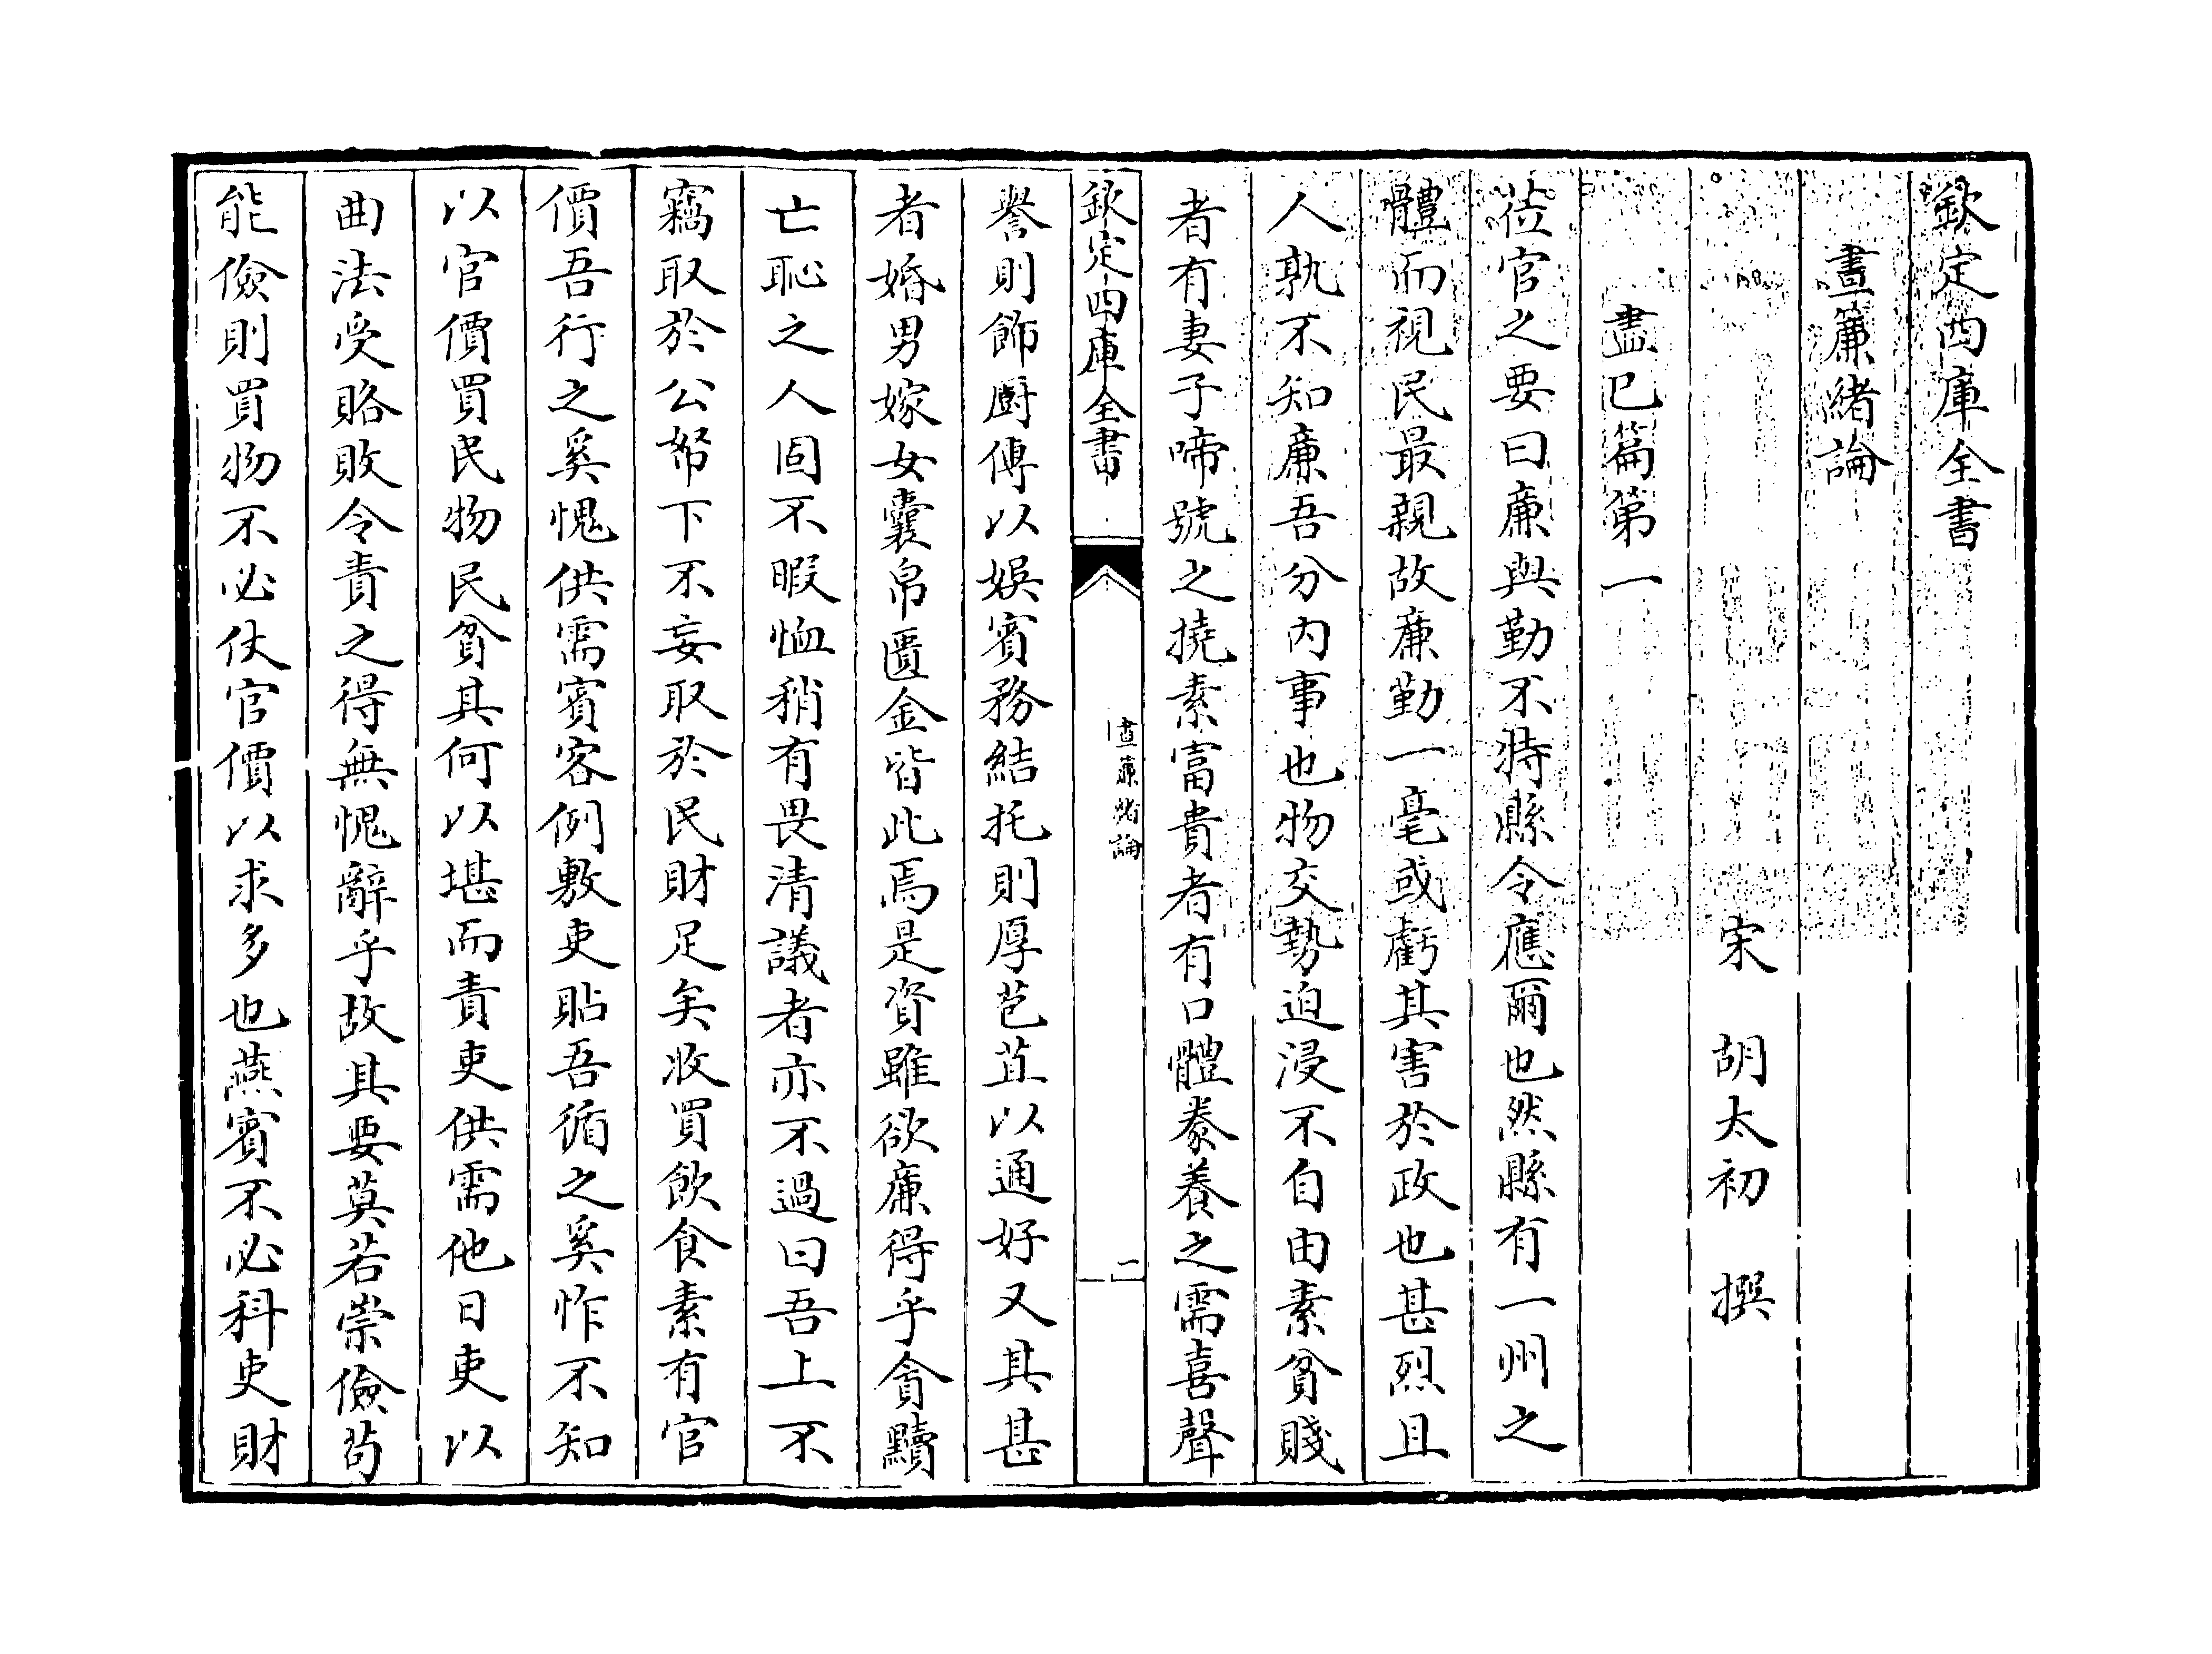 欽定四庫全書
晝簾緒論
宋 胡太初 撰
盡己篇第一
莅官之要曰廉與勤不特縣令應爾也然縣有一州之
體而視民最親故廉勤一毫或虧其害於政也甚烈且
人孰不知廉吾分内事也物交勢迫浸不自由素貧賤
者有妻子啼號之撓素富貴者有口體豢養之需喜聲
欽定四庫全書
晝簾緒論
二
譽則飾廚傳以娛賓務結托則厚苞苴以通好又其甚
者婚男嫁女囊帛匱金皆此焉是資雖欲廉得乎貪黷
亡恥之人固不暇恤稍有畏清議者亦不過曰吾上不
竊取於公帑下不妄取於民財足矣收買飲食素有官
價吾行之奚愧供需賓客例敷吏貼吾循之奚怍不知
以官價買民物民貧其何以堪而責吏供需他日吏以
曲法受賂敗令責之得無愧辭乎故其要莫若崇儉苟
能儉則買物不必仗官價以求多也燕賓不必科吏財